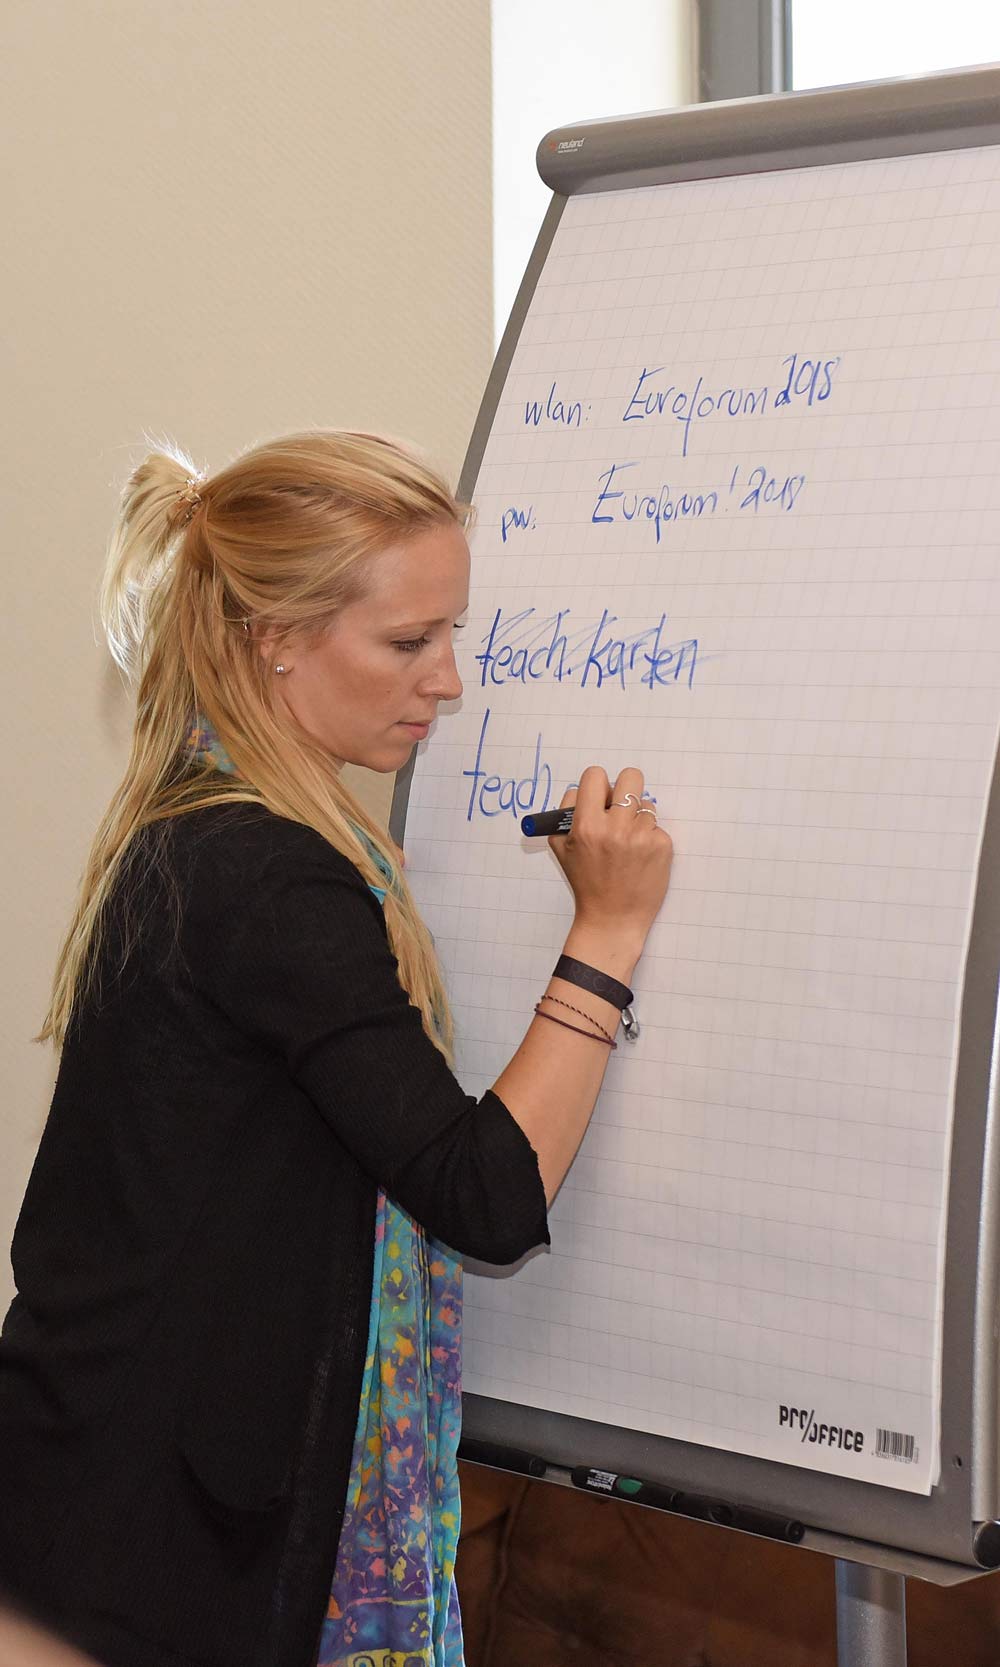 neuland
wlan: Euroforum2018
pw: Euroforum!2018
teach.karten
teach.
PRO/OFFICE